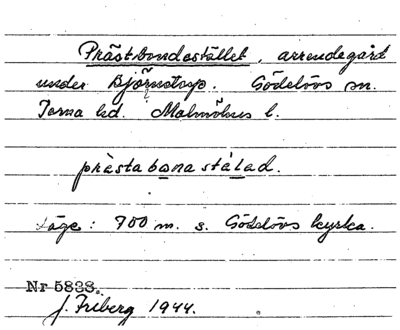 Prästbondestället, arrendegård
under Björnstorp. Gödelövs sn.
Torna hd. Malmöhus l.
prästabonastålad.
Läge: 700 m. s. Gödelövs kyrka.
Nr 5838.
J. Friberg 1944.